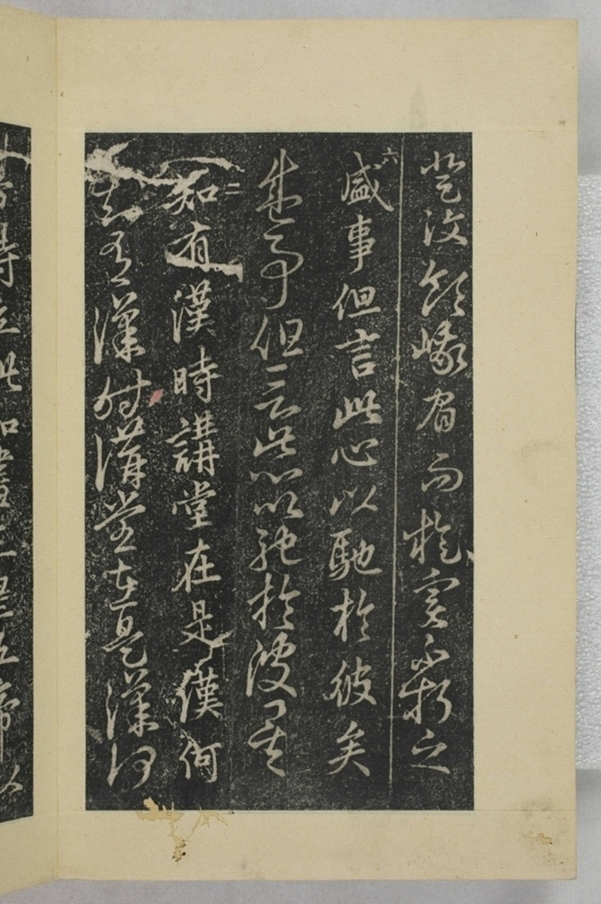 登汶領峨眉而旋實不朽之
六
盛事但言此心以馳於彼矣
盛事但言此心以馳於彼矣
二
知有漢時講堂在是漢何
知有漢時講堂在是漢何
帝時立此知畫三皇五帝以